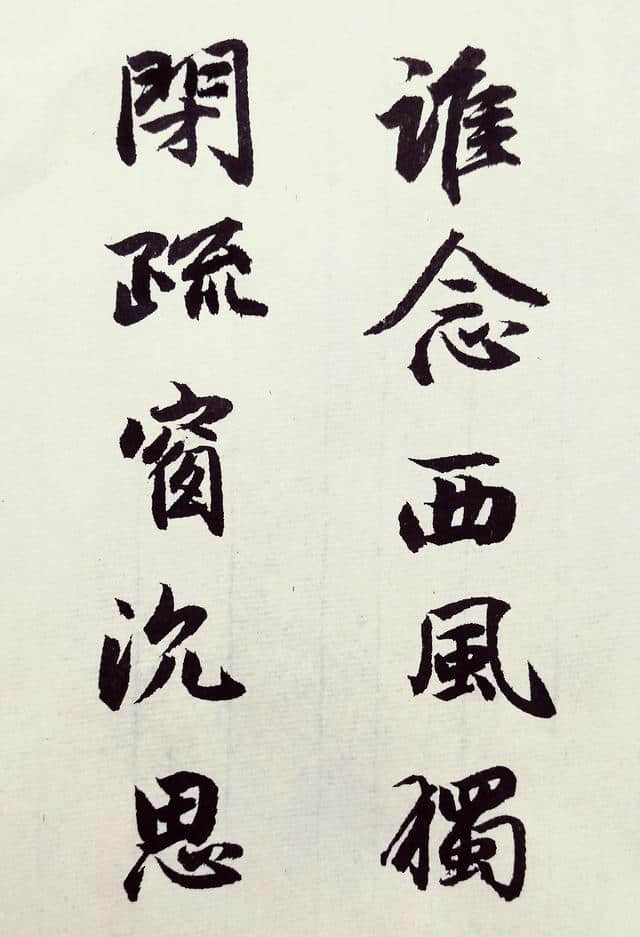 誰念西風獨
閉疏窗沉思